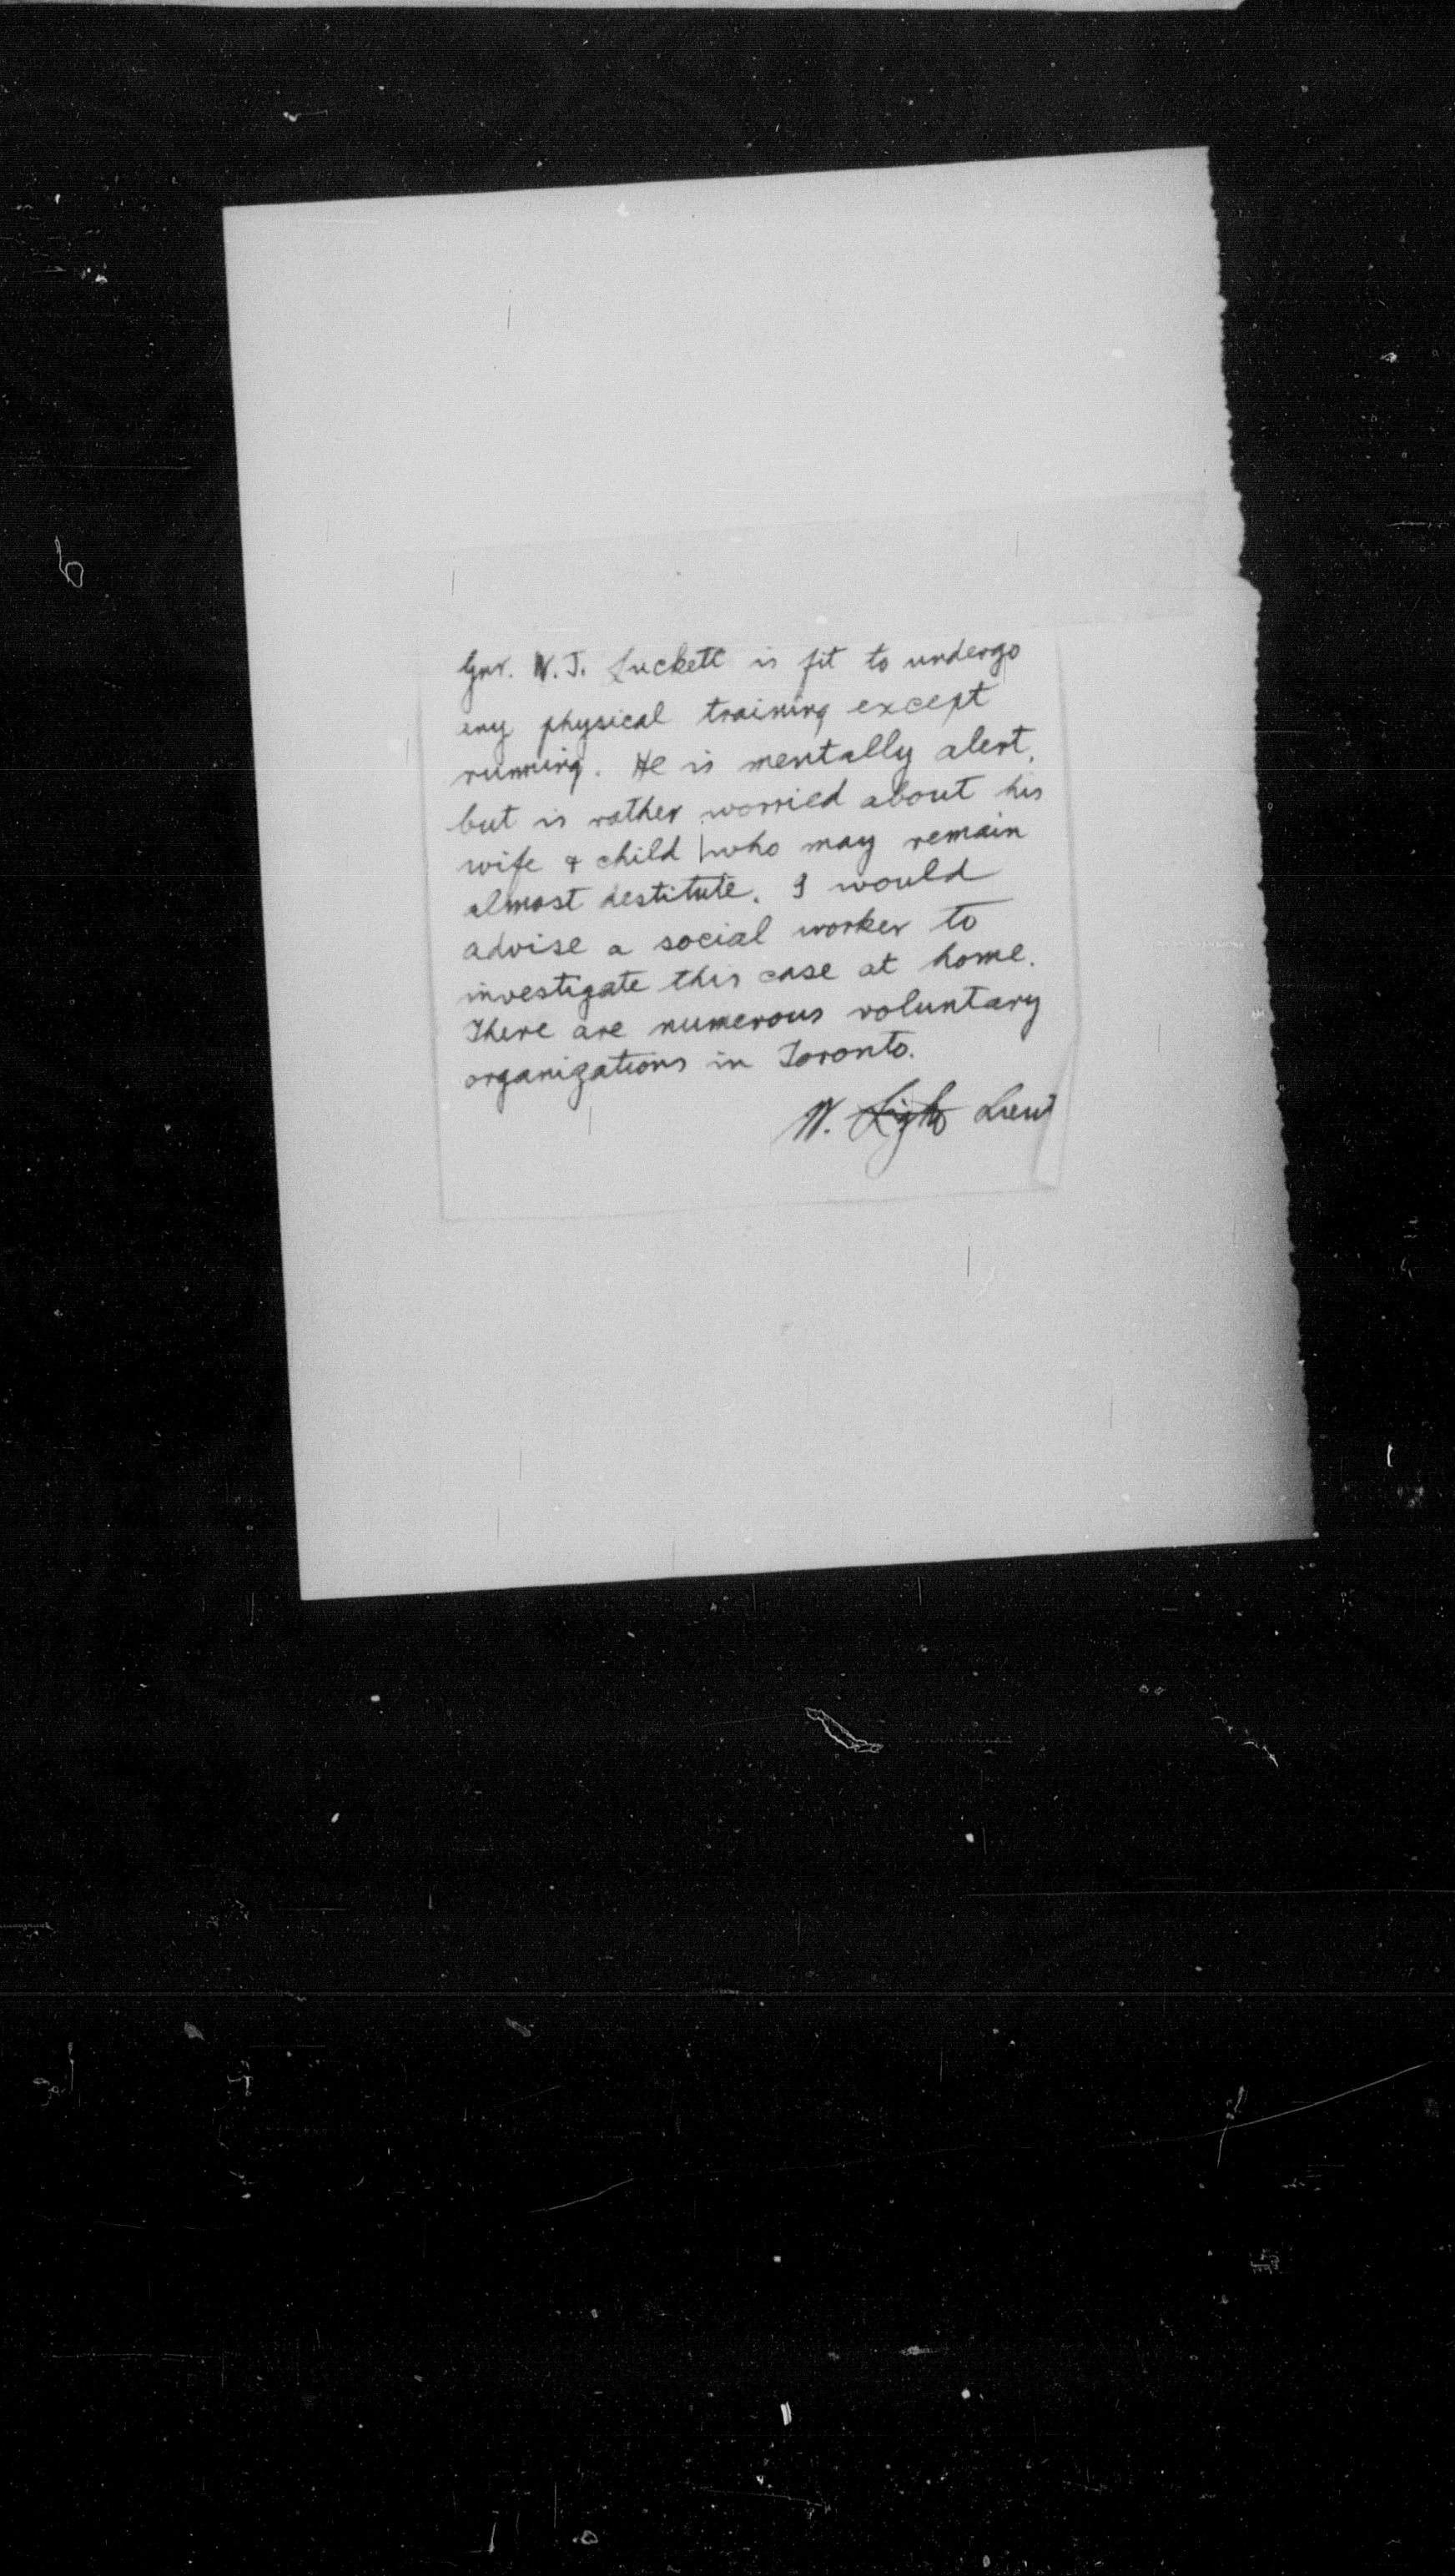 Gnr. N. J. Luckett is fit to undergo
any physical training except
running. He is mentally alert,
but is rather worried about his
wife & child who may remain
almost destitute. I would
advise a social worker to
investigate this case at home.
There are numerous voluntary
organizations in Toronto.
W. Lieut